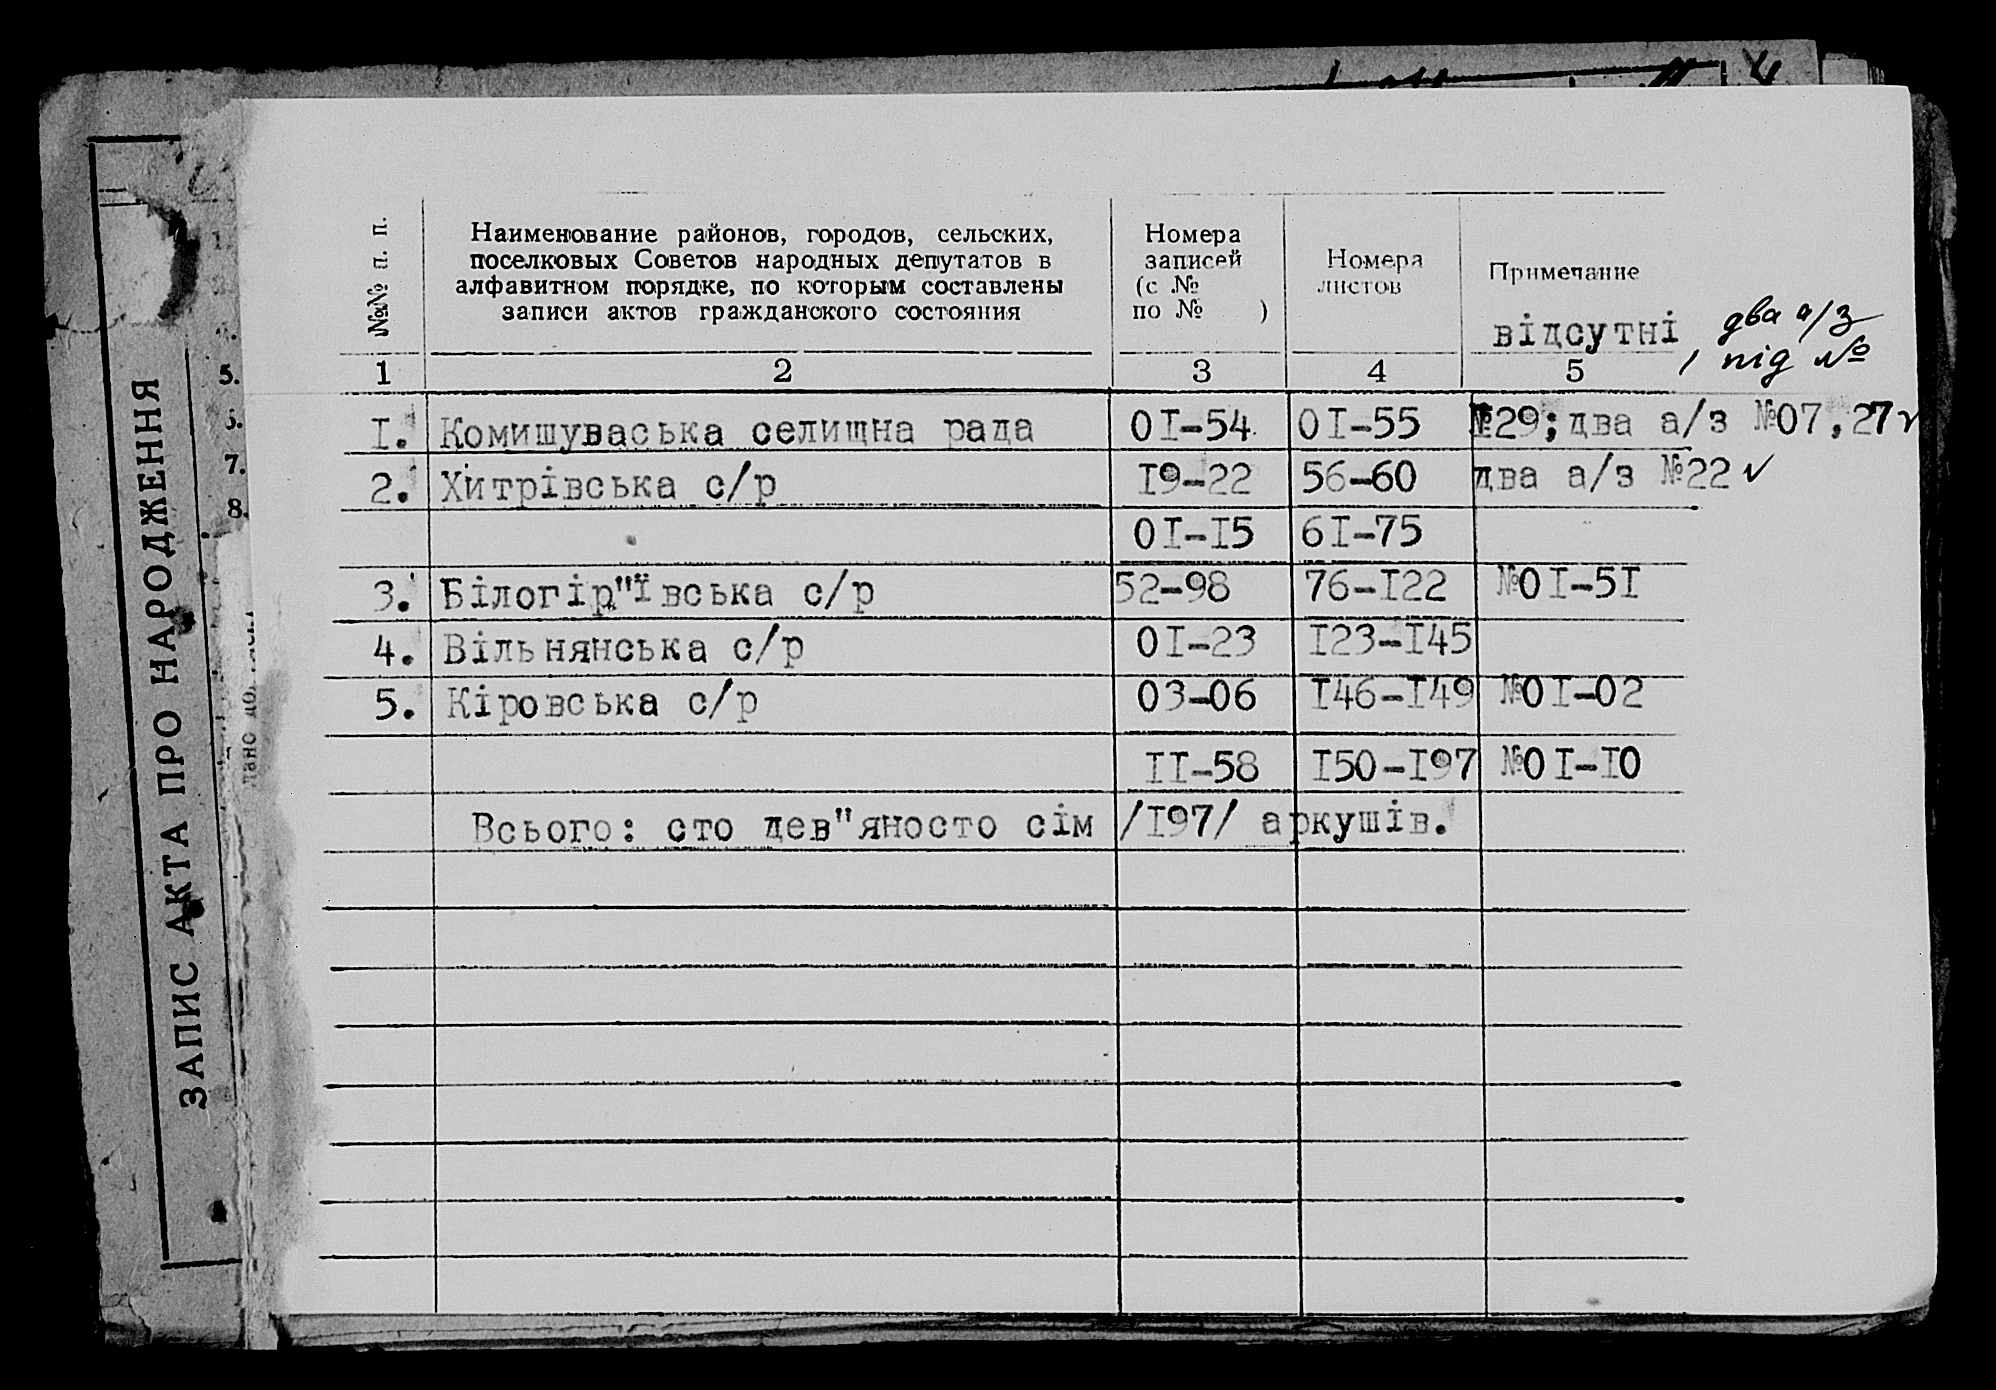 ЗАПИС АКТА ПРО НАРОДЖЕННЯ
5.
7.
8.
№№ п. п.
Наименование районов, городов, сельских,
поселковых Советов народных депутатов в
алфавитном порядке, по которым составлены
записи актов гражданского состояния
Номера
записей
(с №
по № )
Номера
листов
Примечание
відсутні, два а/з
під №
1 2 3 4 5
I. Комишуваська селищна рада 0I-54 0I-55 №29; два а/з №07,27 ✓
2. Хитрівська с/р I9-22 56-60 два а/з №22 ✓
0I-I5 6I-75
3. Білогір"ївська с/р 52-98 76-I22 №0I-5I
4. Вільнянська с/р 0I-23 I23-I45
5. Кіровська с/р 03-06 I46-I49 №0I-02
II-58 I50-I97 №0I-I0
Всього: сто дев"яносто сім /I97/ аркушів.